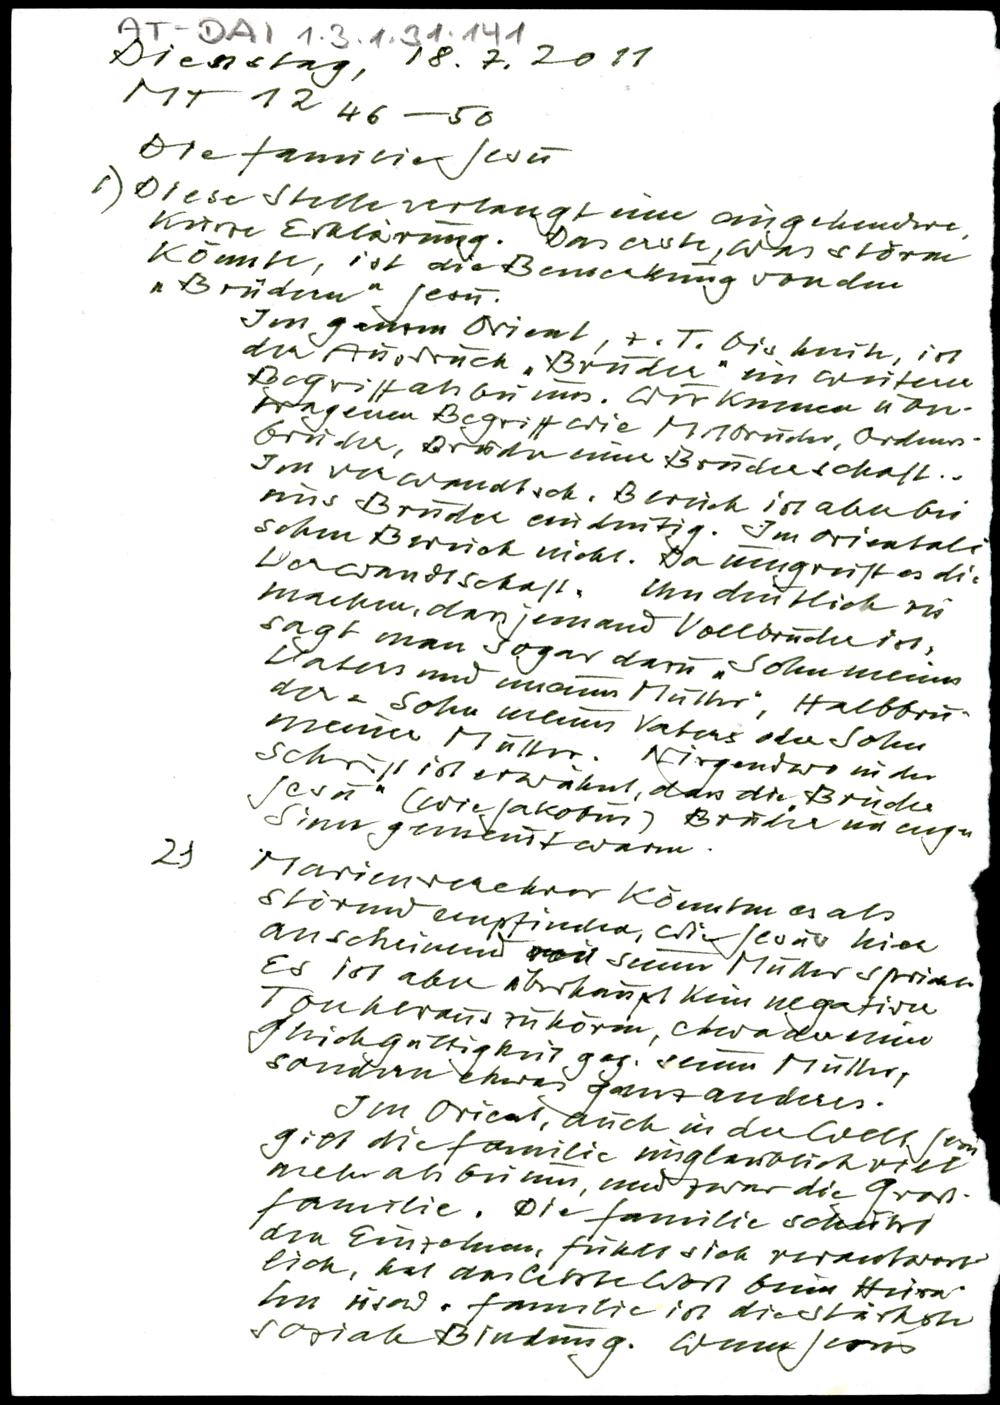 AT-DAI 1.3.1.31.141
Dienstag, 18.7.2011
MT 12 46-50
Die Familie Jesu
1) Diese Stelle verlangt eine eingehendere,
kurze Erklärung. Das erste, was stören
könnte, ist die Bemerkung von den
"Brüdern" Jesu.
Im ganzen Orient, z.T. bis heute, ist
der Ausdruck "Bruder" ein weiterer
Begriff als bei uns. Wir kennen über-
tragenen Begriff wie Mitbruder, Ordens-
bruder, Bruder einer Bruderschaft..
Im verwandtsch. Bereich ist aber bei
uns Bruder eindeutig. Im orientali
schen Bereich nicht. Da umgreift es die
Verwandtschaft. Um deutlich zu
machen, dass jemand Vollbruder ist,
sagt man sogar dazu "Sohn meines
Vaters und meiner Mutter", Halbbru-
der = Sohn meines Vaters oder Sohn
meiner Mutter. Nirgendwo in der
Schrift ist erwähnt, dass die "Brüder
Jesu" (wie Jakobus) Brüder im engen
Sinn gemeint waren.
2) Marienverehrer könnten es als
störend empfinden, wie Jesus hier
anscheinend von seiner Mutter spricht.
Es ist aber überhaupt kein negativer
Ton herauszuhören, etwa der einer
Gleichgültigkeit geg. seiner Mutter,
sondern etwas ganz anderes.
Im Orient, auch in der Welt Jesu
gilt die Familie unglaublich viel
mehr als bei uns, und zwar die Gross-
familie. Die Familie schützt
den Einzelnen, fühlt sich verantwort
lich, hat das letzte Wort beim Heira
ten usw. Familie ist die stärkste
soziale Bindung. Wenn Jesus